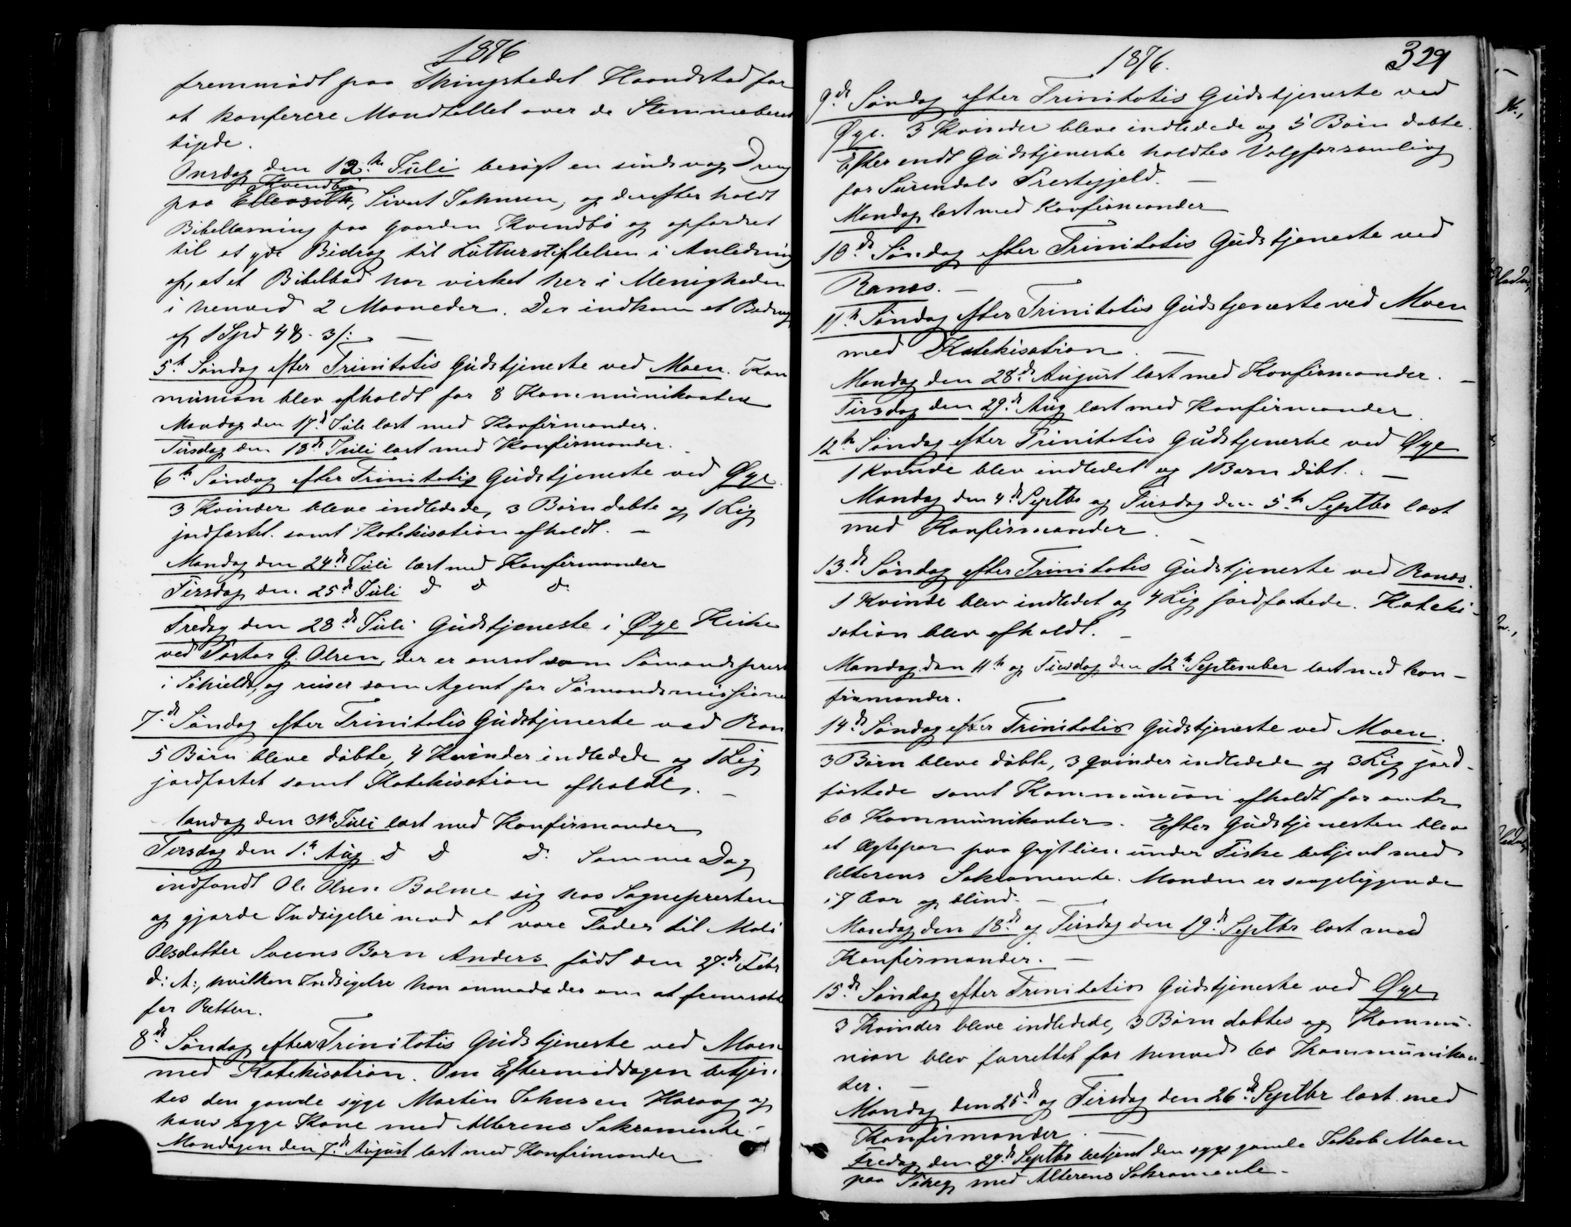 1876
fremmødt paa Thingstedet Haandstad for
at konferere Mandtallet over de Stemmeberet
tigede.
Onsdag den 12te Juli besøgt en sindsvag Dreng
Kvendbø
paa Sivert Johnsen, og derefter holdt
Bibellæsning paa Gaarden Kvendbø og opfordret
til at yde Bidrag til Lutherstiftelsen i Anledning
af, at et Bibelbud har virket her i Menigheden
i henved 2 Maaneder. Der indkom et Bidrag
af 1 Spd 4 3 /:
5te Søndag efter Trinitatis Gudstjeneste ved Moen. Kom
munion blev afholdt for 8 Kommunikanter
Mandag den 17de Juli læst med Konfirmander.
Tirsdag den 18de Juli læst med Konfirmander.
6te Søndag efter Trinitatis Gudstjeneste ved Øye.
3 Kvinder bleve indledede, 3 Børn døbte og 1 Lig
jordfæstet samt Katekisation afholdt. —
Mandag den 24de Juli læst med Konfirmander
Tirsdag den 25de Juli d d d.
Fredag den 28de Juli Gudstjeneste i Øye Kirke
ved Pastor G. Olsen, der er ansat som Sømandsprest
i Schields, og reiser som Agent for Sømandsmissionen
7de Søndag efter Trinitatis Gudstjeneste ved Ran
5 Børn bleve døbte, 4 Kvinder indledede og 1 Lig
jordfæstet samt Katekisation afholdt. —
Mandag den 31te Juli læst med Konfirmander
Tirsdag den 1te Aug d d d. Samme Dag
indfandt Ole Olsen Bolme sig hos Sognepresten
og gjorde Indsigelse mod at være Fader til Mali
Olsdatter Sveens Barn Anders født den 27de Febr
d: A:, hvilken Indsigelse han anmodedes om at fremsætte
for Retten.
8de Søndag efter Trinitatis Gudstjeneste ved Moen
med Katekisation. Om Eftermiddagen betjen-
tes den gamle syge Martin Johnsen Haraag og
hans syge Kone med Alterens Sakramente. —
Mandagen den 7de August læst med Konfirmander
1876.
329
9de Søndag efter Trinitatis Gudstjeneste ved
Øye. 3 Kvinder bleve indledede og 5 Børn døbte.
Efter endt Gudstjeneste holdtes Valgforsamling
for Surendals Prestegjeld. —
Mandag læst med Konfirmander
10de Søndag efter Trinitatis Gudstjeneste ved
Ranes. —
11te Søndag efter Trinitatis Gudstjeneste ved Moen
med Katekisation. —
Mandag den 28de August læst med Konfirmander. —
Tirsdag den 29de Aug læst med Konfirmander
12te Søndag efter Trinitatis Gudstjeneste ved Øye
1 Kvinde blev indledet og 1 Barn døbt. —
Mandag den 4de Septbr og Tirsdag den 5te Septbr læst
med Konfirmander. —
13de Søndag efter Trinitatis Gudstjeneste ved Ranes.
1 Kvinde blev indledet og 4 Lig jordfæstede. Kateki-
sation blev afholdt. —
Mandag den 11te og Tirsdag den 12te September læst med kon-
firmander.
14de Søndag efter Trinitatis Gudstjeneste ved Moen.
3 Børn bleve døbte, 3 qvinder indledede og 3 Lig jord-
fæstede samt Kommunion afholdt for omtr
60 Kommunikanter. Efter Gudstjenesten blev
et Ægtepar paa Grytlien under Fiske betjent med
Alterens Sakramente. Manden er sengeliggende
i 7 Aar og blind. —
Mandag den 18de og Tirsdag den 19de Septbr læst med
Konfirmander. —
15de Søndag efter Trinitatis Gudstjeneste ved Øye
3 Kvinder bleve indledede, 3 Børn døbtes og Kommu-
nion blev forrettet for henved 60 Kommunikan-
ter. —
Mandag den 25de og Tirsdag den 26de Septbr læst med
Konfirmander —
Fredag den 29de Septbr betjent den syge gamle Jakob Moen
paa med Alterens Sakramente.